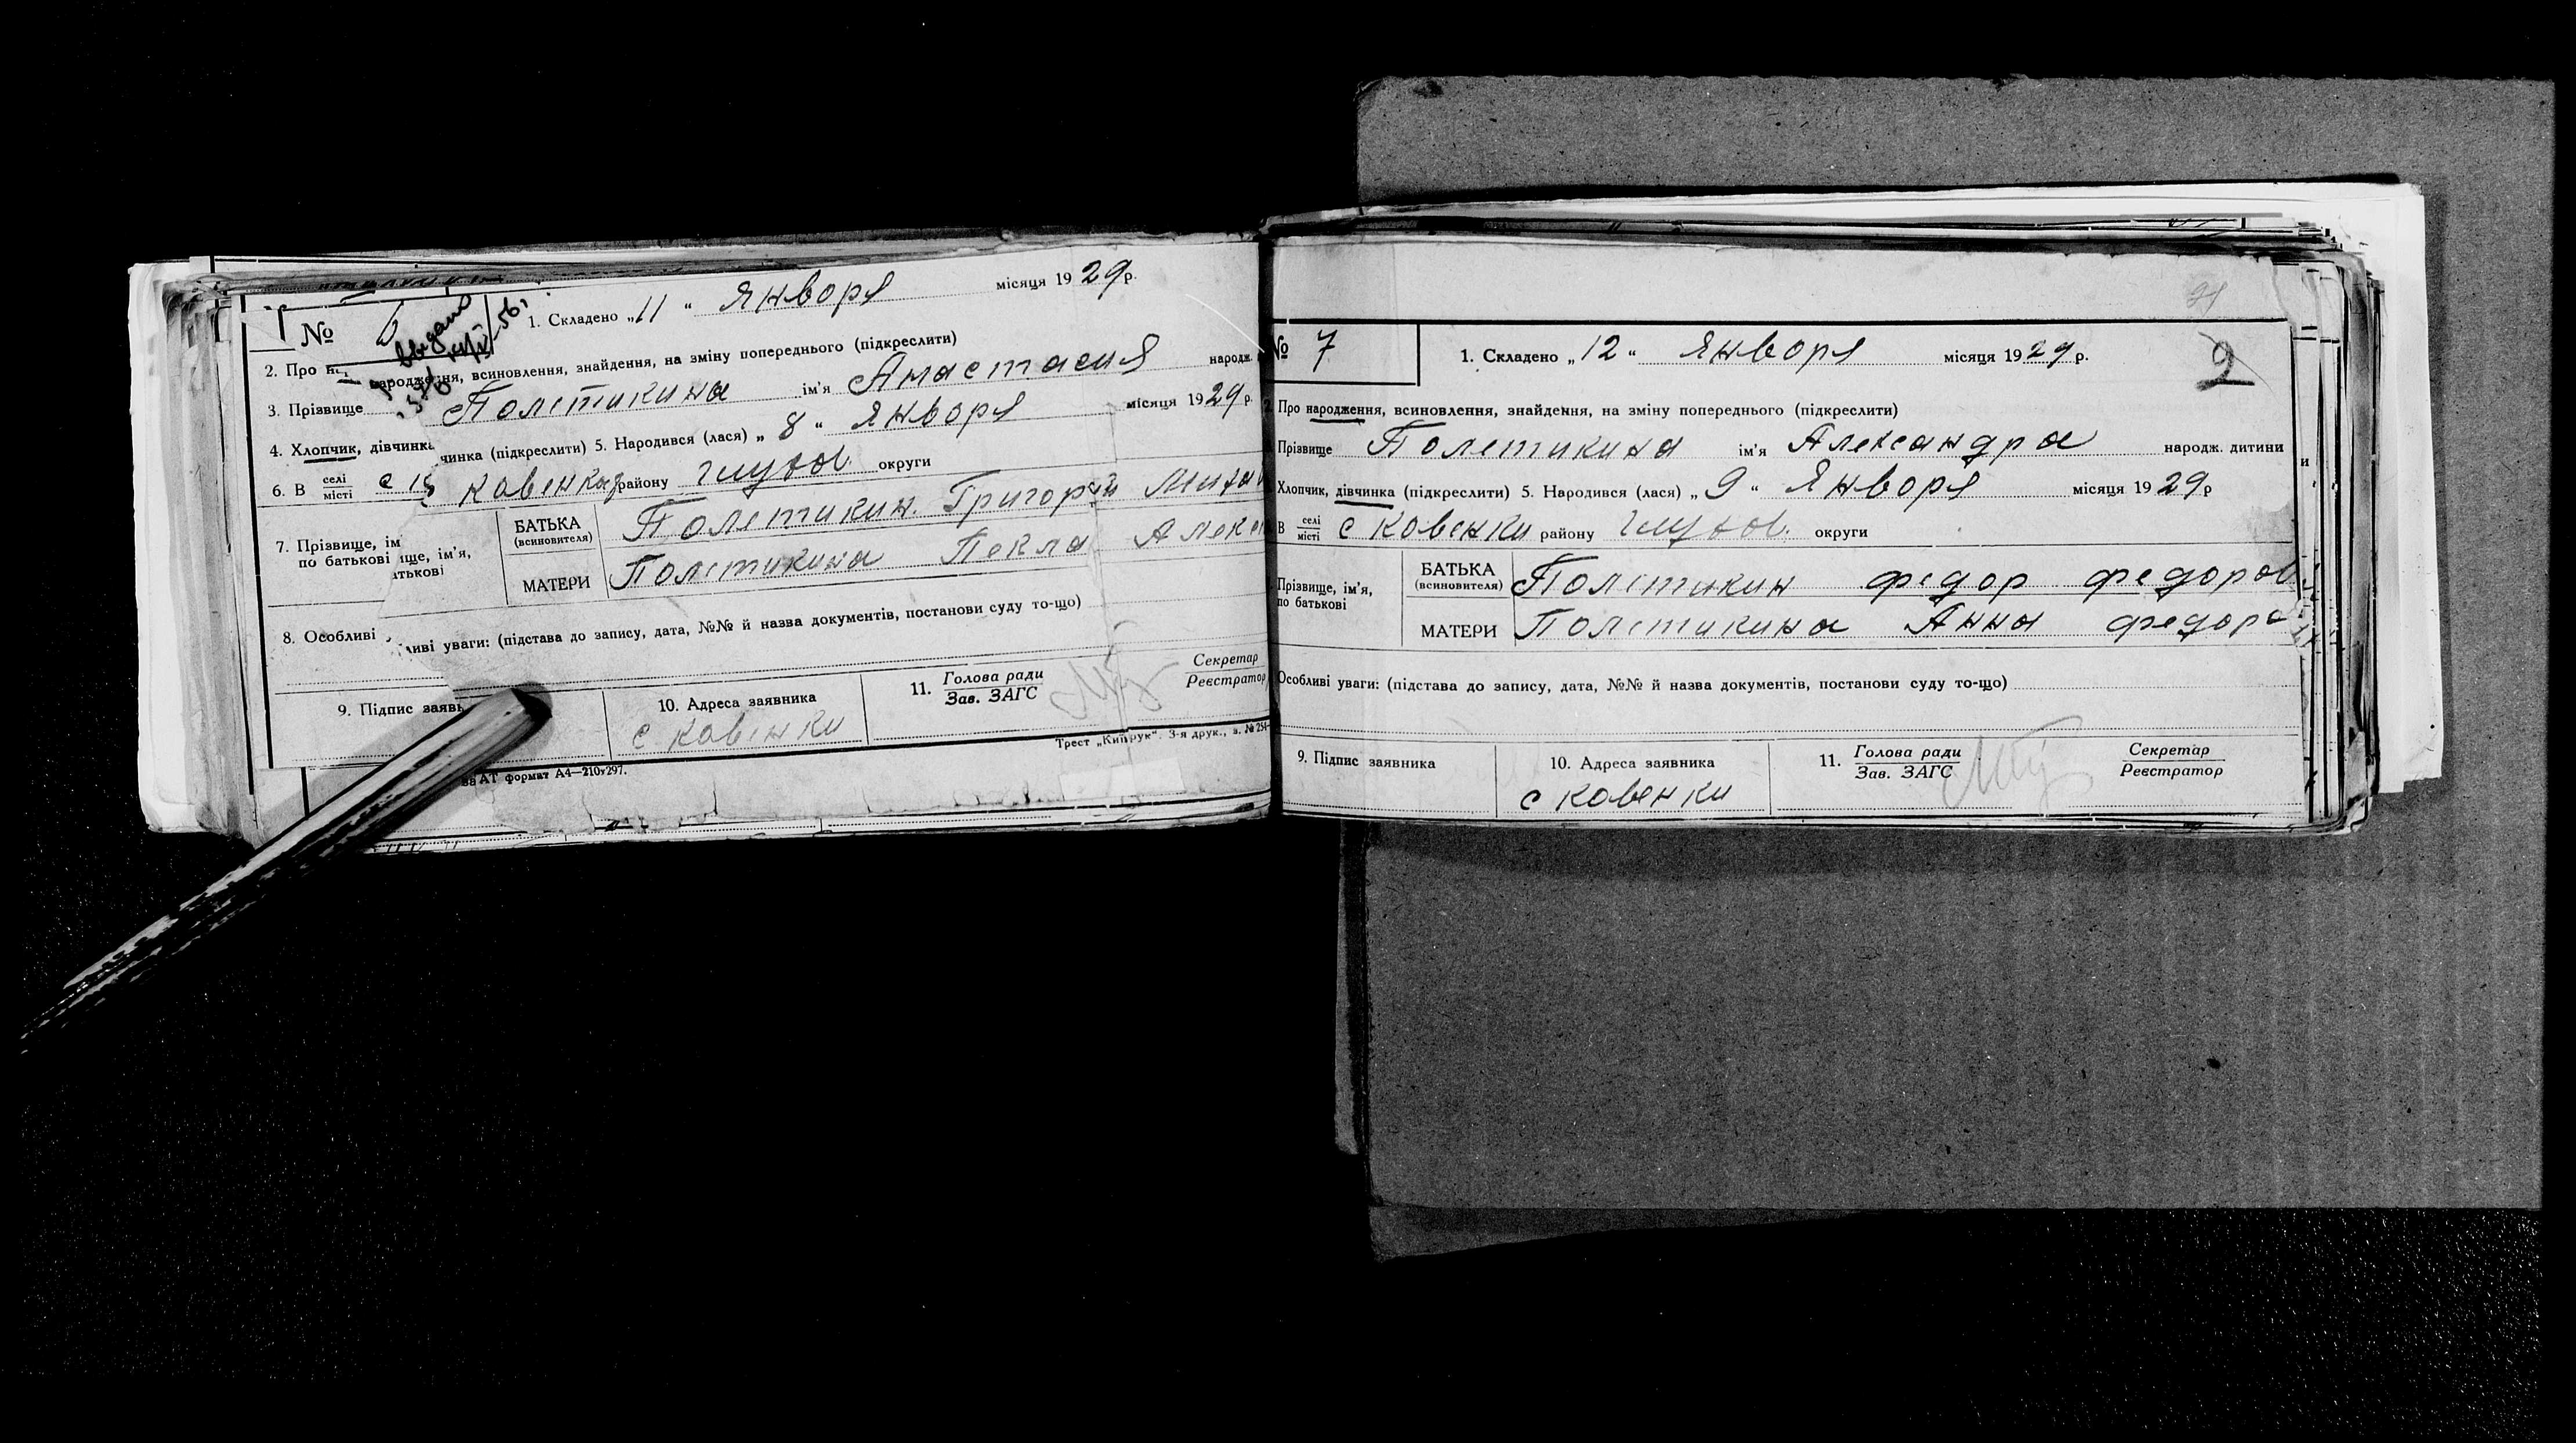 № 6
выдано
56 г
1. Складено „11" Января місяця 1929 р.
2. Про народження, всиновлення, знайдення, на зміну попереднього (підкреслити)
3. Прізвище Полетикина ім'я Анастасия народж.
4. Хлопчик, дівчинка
чинка (підкреслити) 5. Народився (лася) „8" Января місяця 1929 р.
6. В селі місті с Ковенки району Глухов. округи
7. Прізвище, ім
по батькові
ще, ім'я,
тькові
БАТЬКА (всиновителя) Полетикин Григорий Михай
МАТЕРИ Полетикина Текла Алекс
8. Особливі
ливі уваги: (підстава до запису, дата, №№ й назва документів, постанови суду то-що)
9. Підпис заяв
10. Адреса заявника
с Ковенки
11. Голова ради
Зав. ЗАГС
Секретар
Реєстратор
Трест „Київдрук". 3-я друк., з. № 254
формат А4—210×297.
№ 7
1. Складено „12" Января місяця 1929 р.
2
Про народження, всиновлення, знайдення, на зміну попереднього (підкреслити)
Прізвище Полетикина ім'я Александра народж. дитини
Хлопчик, дівчинка (підкреслити) 5. Народився (лася) „9" Января місяця 1929 р
В селі місті с Ковенки району Глухов. округи
Прізвище, ім'я,
по батькові
БАТЬКА (всиновителя) Полетикин Федор Федоров
МАТЕРИ Полетикина Анна Федоро
Особливі уваги: (підстава до запису, дата, №№ й назва документів, постанови суду то-що)
9. Підпис заявника
10. Адреса заявника
с Ковенки
11. Голова ради
Зав. ЗАГС
Секретар
Реєстратор